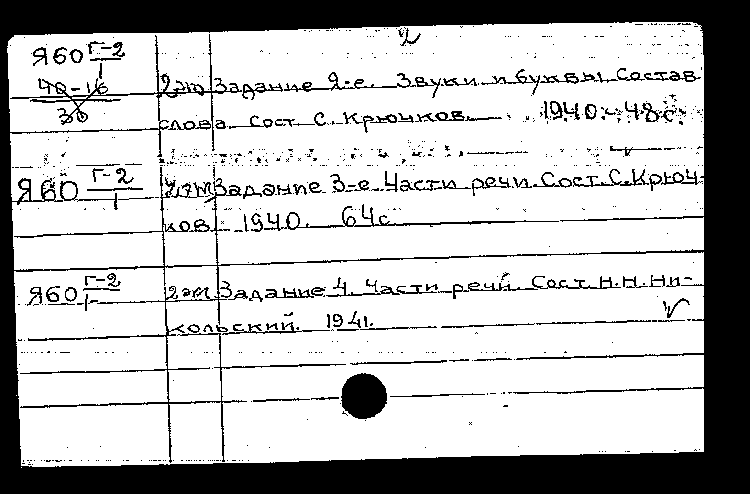 2
Я60 Г-2
1
40-16
30
2 эк Задание 2-е. Звуки и буквы. Состав
слова. Сост. С. Крючков. 1940. - 48 с.
Я60 Г-2
1
2 эк Задание 3-е. Части речи. Сост. С. Крюч-
ков. 1940. 64 с
Я60 Г-2
1
2 эк Задание 4. Части речи. Сост. Н.Н. Ни-
кольский. 1941.